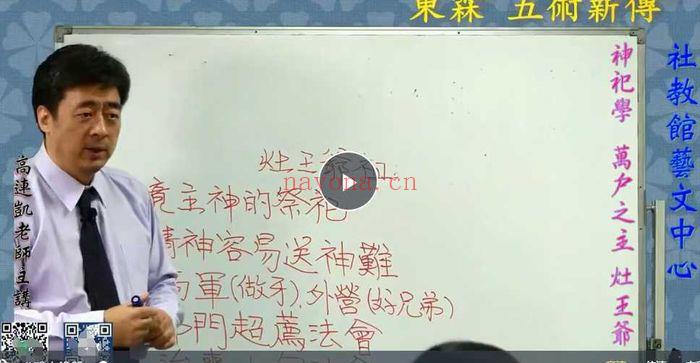 東森 五術新傳
社教館藝文中心
神祀學 萬戶之主 灶王爺
高連凱老師主講
灶王
nayona.cn
竟主神的祭祀
請神容易送神難
軍(做牙).外營(好兄弟)
門超薦法會